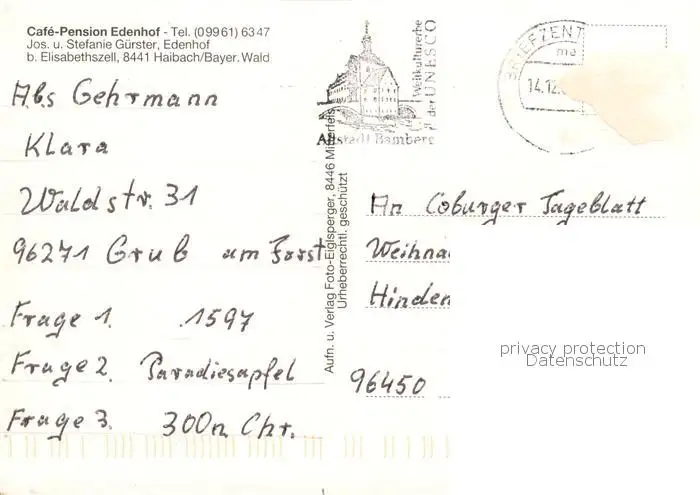 Café-Pension Edenhof - Tel. (0 99 61) 63 47
Jos. u. Stefanie Gürster, Edenhof
b. Elisabethszell, 8441 Haibach/Bayer. Wald
Abs Gehrmann
Klara
Waldstr. 31
96271 Grub am Forst
Frage 1. 1597
Frage 2. Paradiesapfel
Frage 3. 300 n Chr.
Aufn. u. Verlag Foto-Eiglsperger, 8446 Mitterfels
Urheberrechtl. geschützt
Weltkulturerbe
der UNESCO
Altstadt Bamberg
BRIEFZENT
ma
14.12.
An Coburger Tageblatt
Weihna
Hinden
96450
privacy protection
Datenschutz